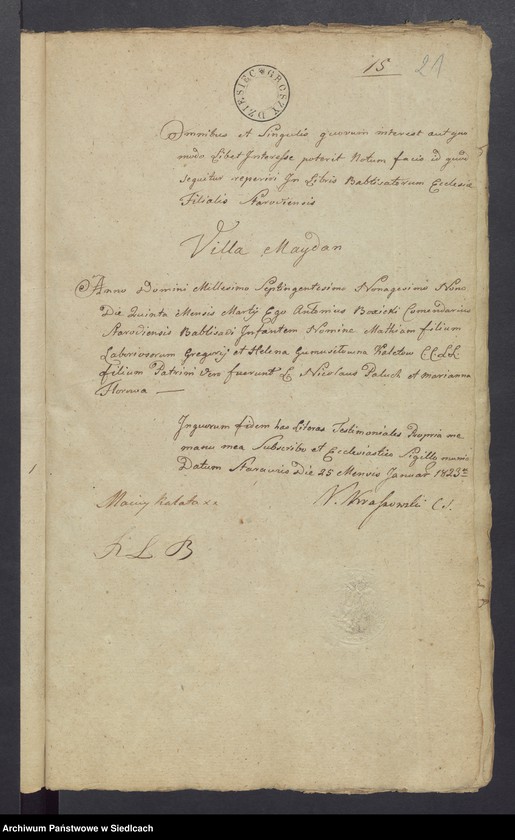 15 21
DZIESIĘC GROSZY
Omnibus et Singulis quorum interest aut quo
modo Libet Interesse poterit Notum facio id quod
sequitur reperiri In Libris Babtisatorum Ecclesia
Filialis Starodiensis
Villa Maydan
Anno Domini Millesimo Septingentesimo Nonagesimo Nono
Die Quinta Mensis Martÿ Ego Antonius Comendarius
Starodiensis Babtisavi Infantem Nomine Mathiam filium
Laboriosorum Gregorÿ et Helena C.C.L.L.
filium Patrini vero fuerunt L. Nicolaus Paluch et Marianna
Inquorum fidem has Literas Testimoniales Propria me
manu mea Subscribo et Ecclesiastico Sigillo munio
Datum Die 25 Mensis Januar 1823
Maciey xx
C.S.
L B
Archiwum Państwowe w Siedlcach